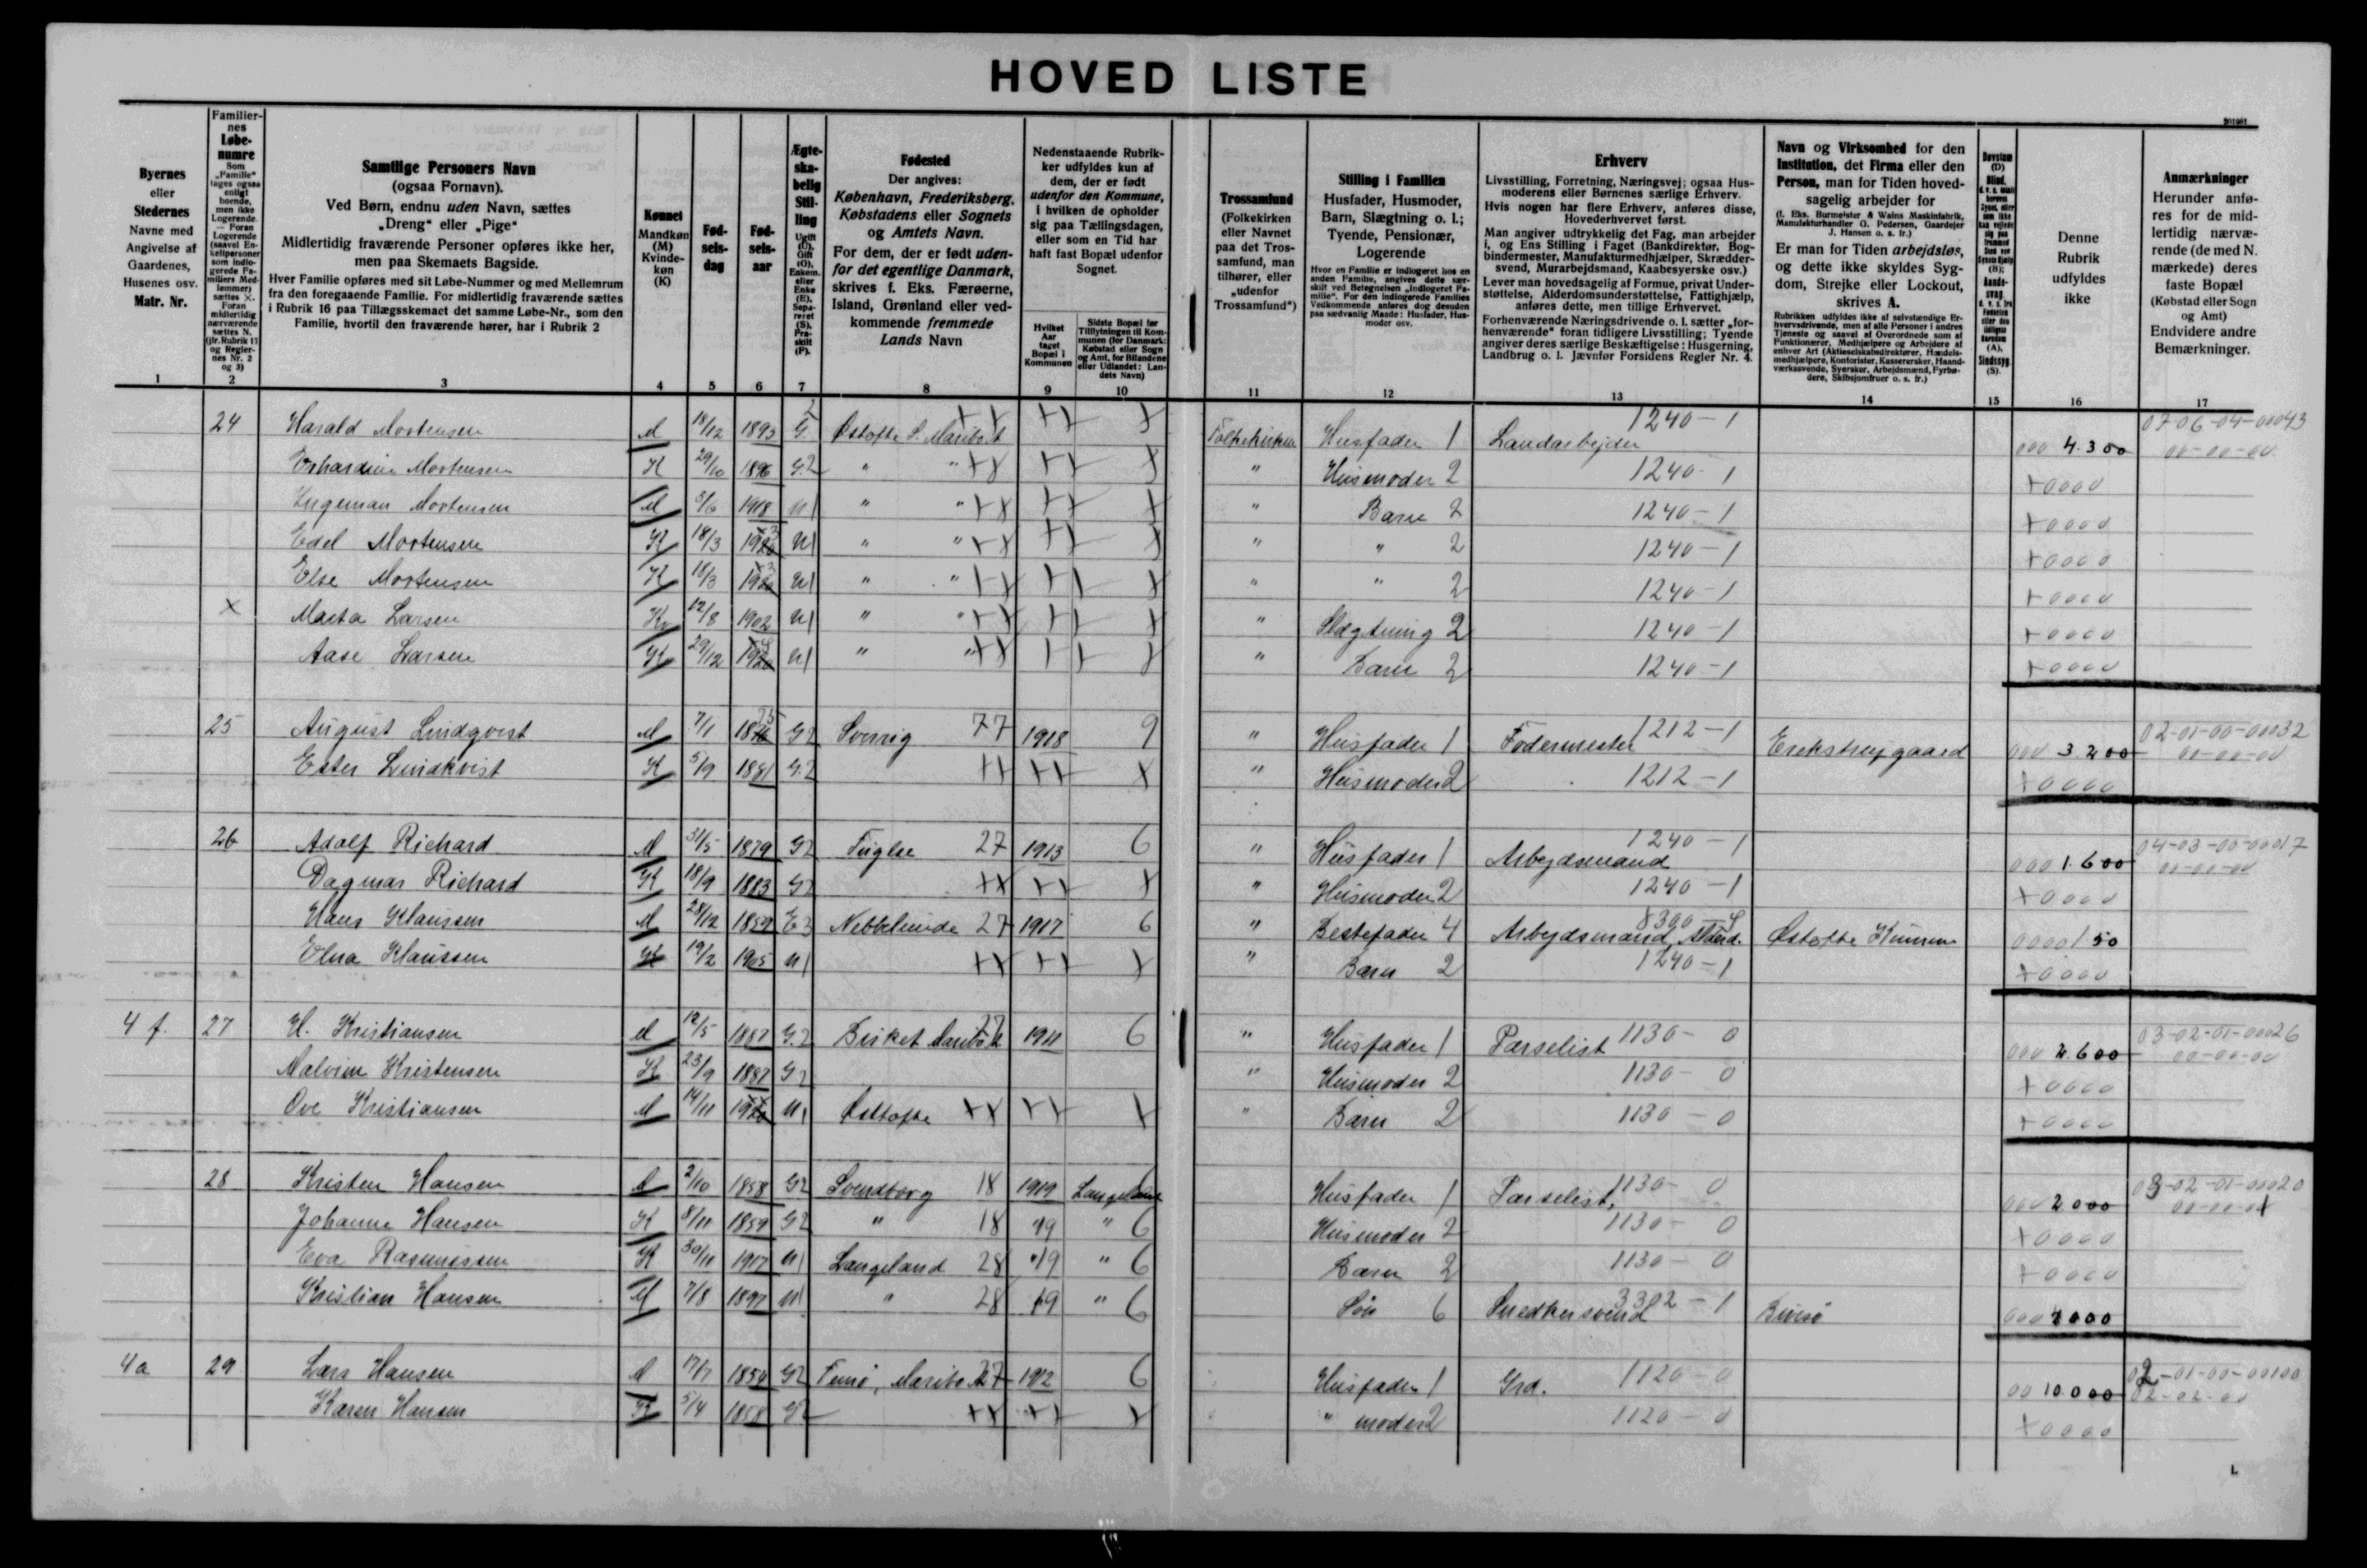 HOVED LISTE
201981
Byernes
eller
Stedernes
Navne med
Angivelse af
Gaardenes,
Husenes osv.
Matr. Nr.
1
Familier-
nes
Løbe-
numre
Som
„Familie"
tages ogsaa
enligt
boende,
men ikke
Logerende.
— Foran
Logerende
(saavel En-
keltpersoner
som indlo-
gerede Fa-
miliers Med-
lemmer)
sættes ×.
Foran
midlertidig
nærværende
sættes N.
(jfr. Rubrik 17
og Regler-
nes Nr. 2
og 3)
2
Samtlige Personers Navn
(ogsaa Fornavn).
Ved Børn, endnu uden Navn, sættes
„Dreng" eller „Pige"
Midlertidig fraværende Personer opføres ikke her,
men paa Skemaets Bagside.
Hver Familie opføres med sit Løbe-Nummer og med Mellemrum
fra den foregaaende Familie. For midlertidig fraværende sættes
i Rubrik 16 paa Tillægsskemaet det samme Løbe-Nr., som den
Familie, hvortil den fraværende hører, har i Rubrik 2
3
Kønnet
Mandkøn
(M)
Kvinde-
køn
(K)
4
Fød-
sels-
dag
5
Fød-
sels-
aar
6
Ægte-
ska-
belig
Stil-
ling
Ugift
(U),
Gift
(G),
Enkem.
eller
Enke
(E),
Sepa-
reret
(S),
Fra-
skilt
(F).
7
Fødested
Der angives:
København, Frederiksberg,
Købstadens eller Sognets
og Amtets Navn.
For dem, der er født uden-
for det egentlige Danmark,
skrives f. Eks. Færøerne,
Island, Grønland eller ved-
kommende fremmede
Lands Navn
8
Nedenstaaende Rubrik-
ker udfyldes kun af
dem, der er født
udenfor den Kommune,
i hvilken de opholder
sig paa Tællingsdagen,
eller som en Tid har
haft fast Bopæl udenfor
Sognet.
Hvilket
Aar
taget
Bopæl i
Kommunen
9
Sidste Bopæl før
Tilflytningen til Kom-
munen (for Danmark:
Købstad eller Sogn
og Amt, for Bilandene
eller Udlandet: Lan-
dets Navn)
10
Trossamfund
(Folkekirken
eller Navnet
paa det Tros-
samfund, man
tilhører, eller
„udenfor
Trossamfund")
11
Stilling i Familien
Husfader, Husmoder,
Barn, Slægtning o. l.;
Tyende, Pensionær,
Logerende
Hvor en Familie er indlogeret hos en
anden Familie, angives dette sær-
skilt ved Betegnelsen „Indlogeret Fa-
milie". For den indlogerede Families
Vedkommende anføres dog desuden
paa sædvanlig Maade: Husfader, Hus-
moder osv.
12
Erhverv
Livsstilling, Forretning, Næringsvej; ogsaa Hus-
moderens eller Børnenes særlige Erhverv.
Hvis nogen har flere Erhverv, anføres disse,
Hovederhvervet først.
Man angiver udtrykkelig det Fag, man arbejder
i, og Ens Stilling i Faget (Bankdirektør, Bog-
bindermester, Manufakturmedhjælper, Skrædder-
svend, Murarbejdsmand, Kaabesyerske osv.)
Lever man hovedsagelig af Formue, privat Under-
støttelse, Alderdomsunderstøttelse, Fattighjælp,
anføres dette, men tillige Erhvervet.
Forhenværende Næringsdrivende o. l. sætter „for-
henværende" foran tidligere Livsstilling; Tyende
angiver deres særlige Beskæftigelse: Husgerning,
Landbrug o. l. Jævnfør Forsidens Regler Nr. 4.
13
Navn og Virksomhed for den
Institution, det Firma eller den
Person, man for Tiden hoved-
sagelig arbejder for
(f. Eks. Burmeister & Wains Maskinfabrik,
Manufakturhandler G. Pedersen, Gaardejer
J. Hansen o. s. fr.)
Er man for Tiden arbejdsløs,
og dette ikke skyldes Syg-
dom, Strejke eller Lockout,
skrives A.
Rubrikken udfyldes ikke af selvstændige Er-
hvervsdrivende, men af alle Personer i andres
Tjeneste og saavel af Overordnede som af
Funktionærer, Medhjælpere og Arbejdere af
enhver Art (Aktieselskabsdirektører, Handels-
medhjælpere, Kontorister, Kassererske, Haand-
værkssvende, Syersker, Arbejdsmænd, Fyrbø-
dere, Skibsjomfruer o. s. fr.)
14
15
Denne
Rubrik
udfyldes
ikke
16
Anmærkninger
Herunder anfø-
res for de mid-
lertidig nærvæ-
rende (de med N.
mærkede) deres
faste Bopæl
(Købstad eller Sogn
og Amt)
Endvidere andre
Bemærkninger.
17
24 Harald Mortensen M 18/12 1893 G. 2 Østofte S. Maribo A ++ ++ + Folkekirken Husfader 1 Landarbejder 1240-1 000 4.300 07-06-04-00043 00-00-00
Erhardine Mortensen K 29/10 1896 G. 2 " " ++ ++ + " Husmoder 2 1240-1 +0000
Ingeman Mortensen M 3/6 1918 U 1 " " ++ ++ + " Barn 2 1240-1 +0000
Edel Mortensen K 18/3 U 1 " " ++ ++ + " " 2 1240-1 +0000
Else Mortensen K 18/3 U 1 " " ++ ++ + " " 2 1240-1 +0000
× Marta Larsen Kv 12/8 1902 U 1 " " ++ ++ + " Slægtning 2 1240-1 +0000
Aase Larsen K 29/12 U 1 " " ++ ++ + " Barn 2 1240-1 +0000
25 August Lindqvist M 7/1 G 2 Sverrig 77 1918 9 " Husfader 1 Fodermester 1212-1 000 3.200 02-01-00-00032 00-00-00
Ester Lindkvist K 5/9 1881 G. 2 ++ ++ + " Husmoder 2 1212-1 +0000
26 Adolf Richard M 31/5 1879 G 2 Fuglse 27 1913 6 " Husfader 1 Arbejdsmand 1240-1 000 1.600 04-03-00-00017 00-00-00
Dagmar Richard K 18/9 1883 G 2 ++ ++ + " Husmoder 2 1240-1 +0000
Hans Klaussen M 28/12 1859 E 3 Nebbelunde 27 1917 6 " Bestefader 4 Arbejdsmand Alderd. Østofte Kommune 0000150
Elna Klaussen K 19/2 1905 U 1 ++ ++ + " Barn 2 1240-1 +0000
4 f. 27 H. Kristiansen M 12/5 1887 G. 2 Birket Maribo A 27 1911 6 " Husfader 1 Parselist 1130-0 000 2.600 03-02-01-00026 00-00-00
Malvine Kristensen K 23/9 1887 G 2 " Husmoder 2 1130-0 +0000
Ove Kristiansen M 14/11 U 1 Østtofte ++ ++ + " Barn 2 1130-0 +0000
28 Kristen Hansen M 2/10 1858 G 2 Svendborg 18 1919 Langeland 6 Husfader 1 Parselist, 1130-0 000 2.000 03-02-01-00020
Johanne Hansen K 8/11 1859 G 2 " 18 19 " 6 Husmoder 2 1130-0 +0000
Eva Rasmussen K 30/11 1917 U 1 Langeland 28 "19 " 6 Barn 2 1130-0 +0000
Kristian Hansen M 7/8 1897 U 1 " 28 19 " 6 Søn 6 Snedkersvend 3302-1
4a 29 Lars Hansen M 17/7 G 2 Femø, Maribo A 27 1912 6 Husfader 1 Grd. 1120-0 00 10.000 02-01-00-00100 02-02-00
Karen Hansen K 5/4 1858 G 2 ++ ++ + " moder 2 1120-0 +0000
L